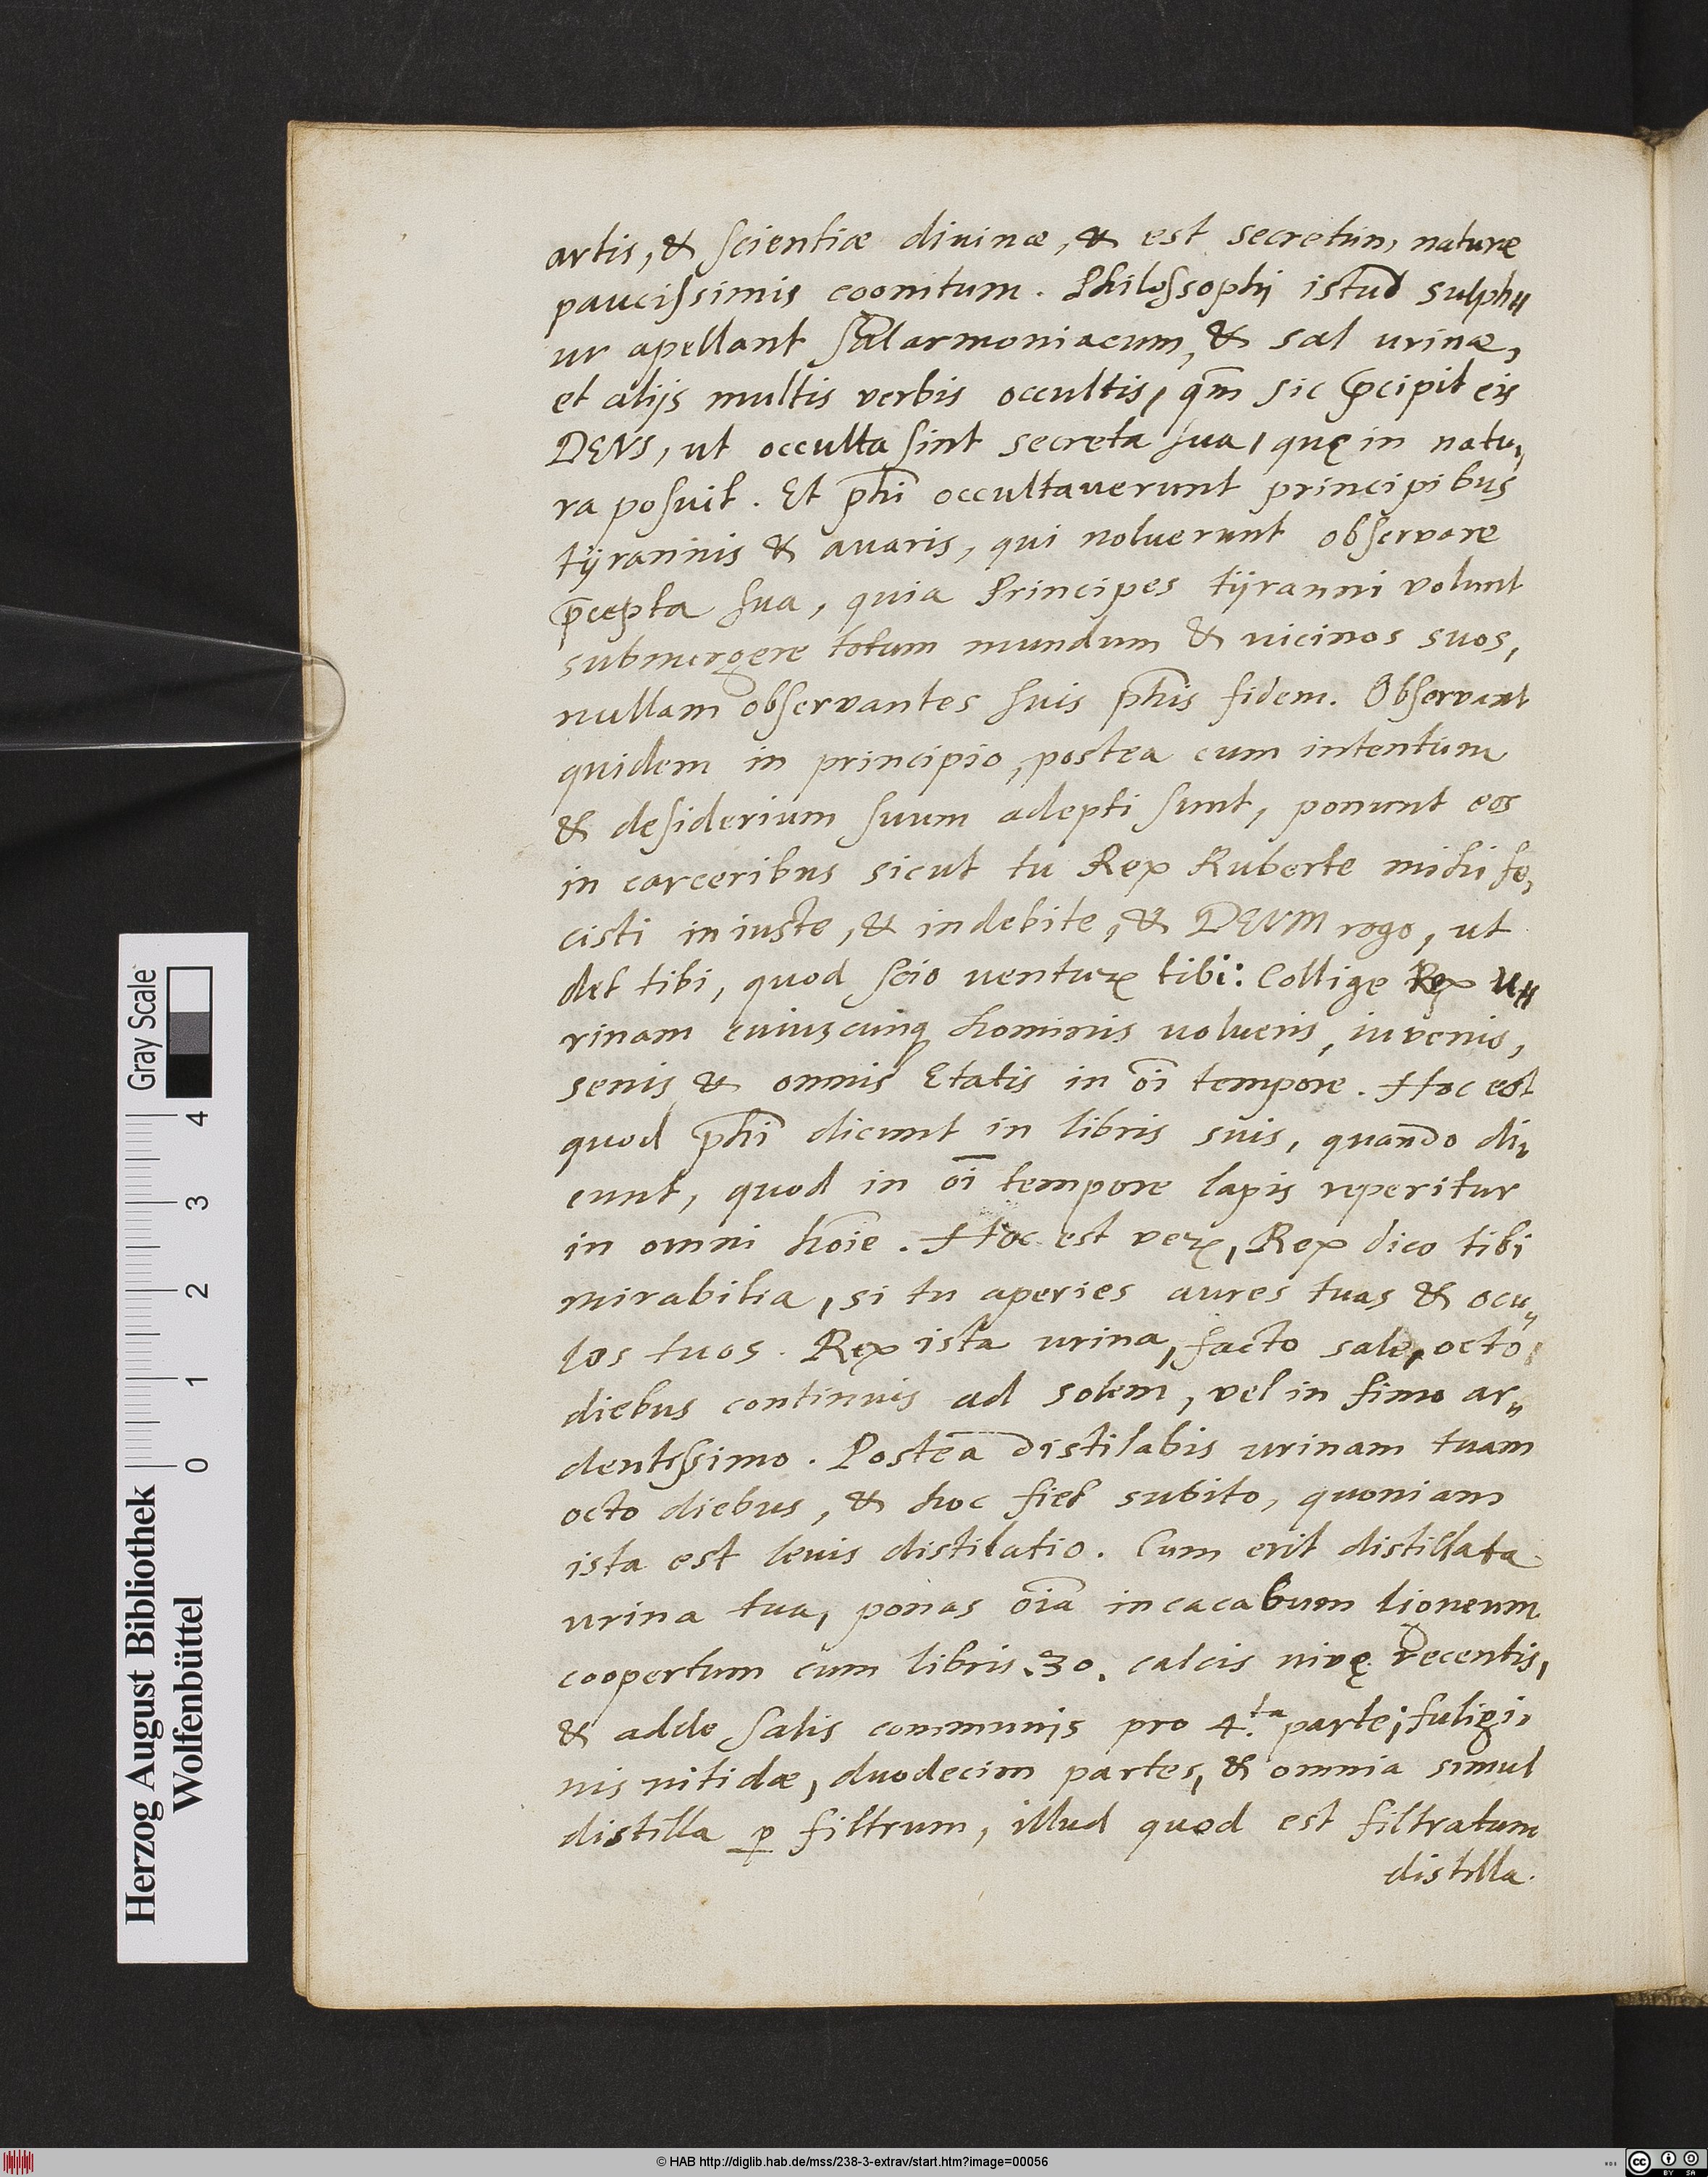 artis, & scientiæ diuinæ, & est secretũm, naturæ
paucissimis cognitum. Philossophi istud sulph〃
ur apellant Salarmoniacum, & sal urinæ,
et alijs multis verbis occultis, qm̄ sic p̄cipit eis
DEVS, ut occulta sint secreta sua, quę in natu〃
ra posuit. Et ph̄i occultauerunt principibus
tÿrannis & auaris, qui noluerunt observare
p̄cepta sua, quia Principes tÿranni volunt
submergere totum mundum & uicinos suos,
nullam observantes suis ph̄is fidem. Observant
quidem in principio, postea cum intentum
& desiderium suum adepti sunt, ponunt eos
in carceribus sicut tu Rex Ruberte mihi fe,
cisti iniuste, & indebite, & DEVM rogo, ut
det tibi, quod scio venturꝝ tibi: Collige Rex u〃
rinam cuiuscunq hominis uolueris, iuvenis,
senis & omnis Etatis in oī tempore. Hoc est
quod ph̄i dicunt in libris suis, quando di〃
cunt, quod in oī tempore lapis reperitur
in omni hoīe. Hoc est verꝝ, Rex dico tibi
mirabilia, si tu aperies aures tuas & ocu〃
los tuos. Rex ista urina, facto sale, octo
diebus continuis ad solem, vel in fimo ar〃
dentissimo. Postea distilabis urinam tuam
octo diebus, & hoc fiet subito, quoniam
ista est leuis distilatio. Cum erit distillata
urina tua, ponas oīa in cacabum ligneum
coopertum cum libris .30. calcis vivę recentis,
& adde salis communis pro 4.ta parte; fuligi〃
nis nitidæ, duodecim partes, & omnia simul
distilla ꝑ filtrum, illud quod est filtratum
distilla.
Herzog August Bibliothek
Wolfenbüttel
0 1 2 3 4
Gray Scale
© HAB http://diglib.hab.de/mss/238-3-extrav/start.htm?image=00056
cc BY SA